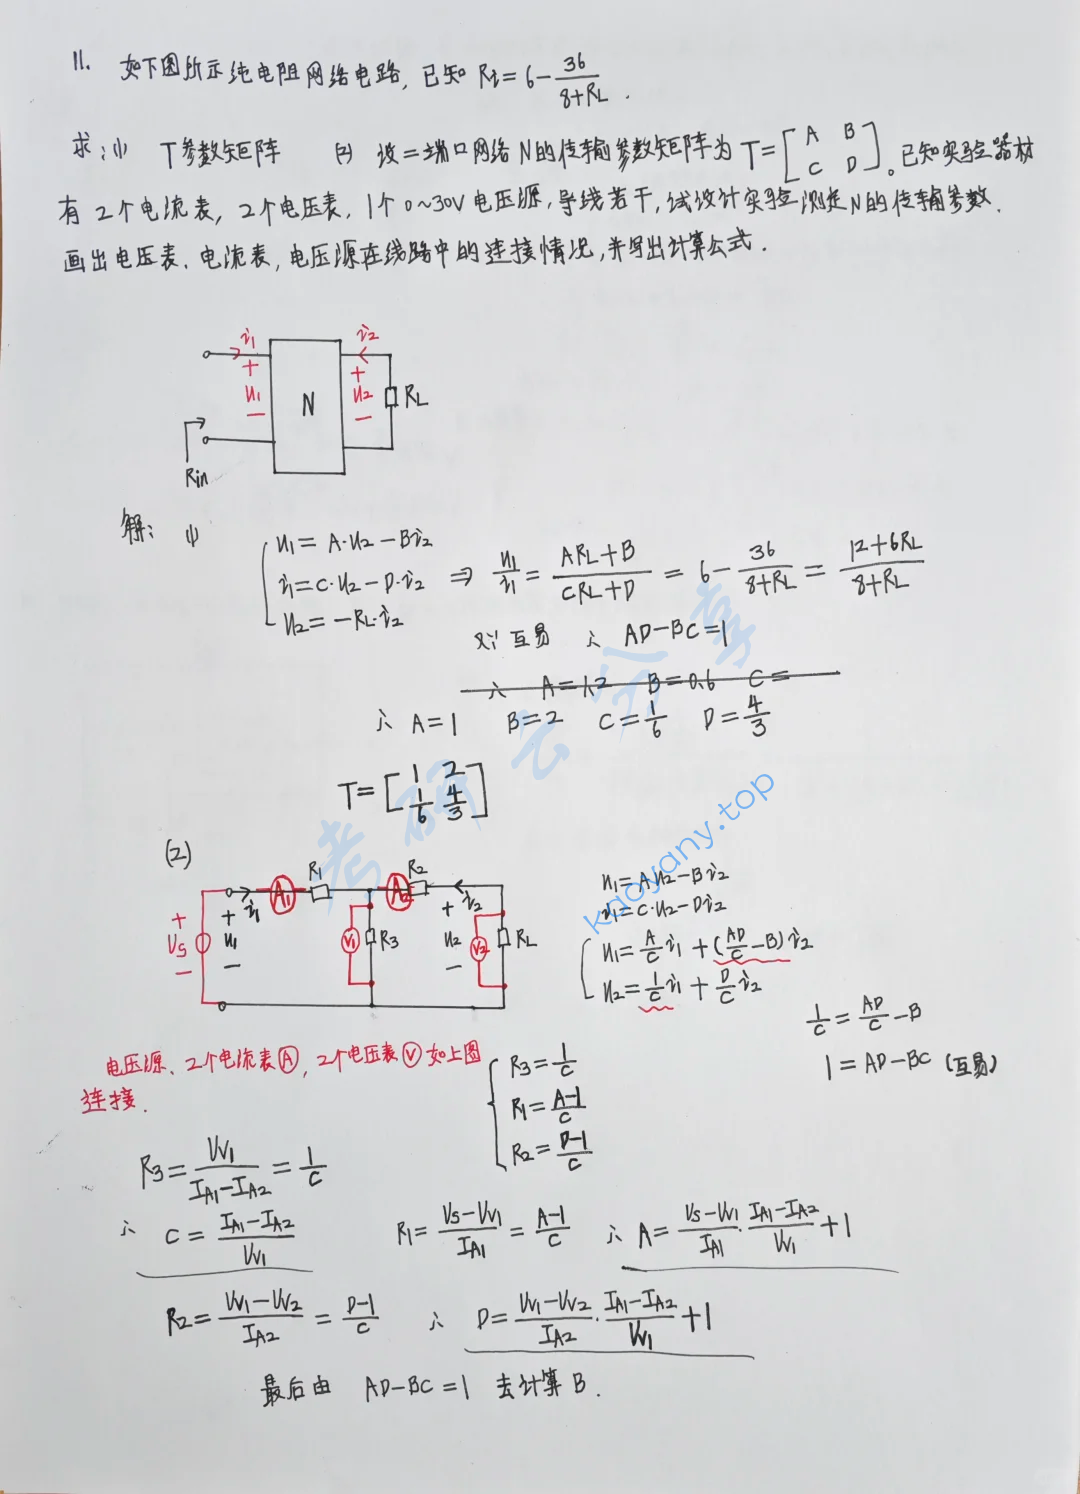 11. 如下图所示纯电阻网络电路, 已知 Ri = 6 - 36/(8+RL) .
求: (1) T参数矩阵 (2) 设二端口网络N的传输参数矩阵为 T = [A B; C D]。已知实验器材
有2个电流表, 2个电压表, 1个0~30V电压源, 导线若干, 试设计实验测定N的传输参数.
画出电压表、电流表, 电压源在线路中的连接情况, 并写出计算公式.
i1 i2
+ u1 - N + u2 - RL
Rin
解: (1)
u1 = A·u2 - Bi2
i1 = C·u2 - D·i2 ⇒ u1/i1 = (ARL+B)/(CRL+D) = 6 - 36/(8+RL) = (12+6RL)/(8+RL)
u2 = -RL·i2
又∵互易 ∴ AD-BC=1
∴ A=1.2 B=0.6 C=
∴ A=1 B=2 C=1/6 D=4/3
T = [1 2; 1/6 4/3]
(2)
R1 R2
A1 A2
i1 i2
+ Vs - + u1 - V1 R3 + u2 - V2 RL
u1 = Au2 - Bi2
i1 = C·u2 - Di2
u1 = A/C i1 + (AD/C - B)i2
u2 = 1/C i1 + D/C i2
1/C = AD/C - B
1 = AD-BC (互易)
电压源、2个电流表Ⓐ, 2个电压表Ⓥ如上图
连接.
R3 = 1/C
R1 = (A-1)/C
R2 = (D-1)/C
R3 = VV1/(IA1-IA2) = 1/C
∴ C = (IA1-IA2)/VV1 R1 = (Vs-VV1)/IA1 = (A-1)/C ∴ A = (Vs-VV1)/IA1 · (IA1-IA2)/VV1 + 1
R2 = (VV1-VV2)/IA2 = (D-1)/C ∴ D = (VV1-VV2)/IA2 · (IA1-IA2)/VV1 + 1
最后由 AD-BC=1 去计算B.
考研云分享
kaoyany.top